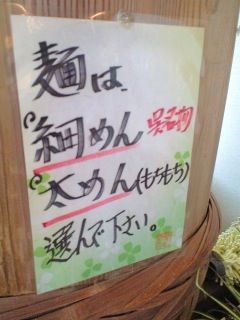 麺は、
細めん 呉名物
太めん(もちもち)
選んで下さい。